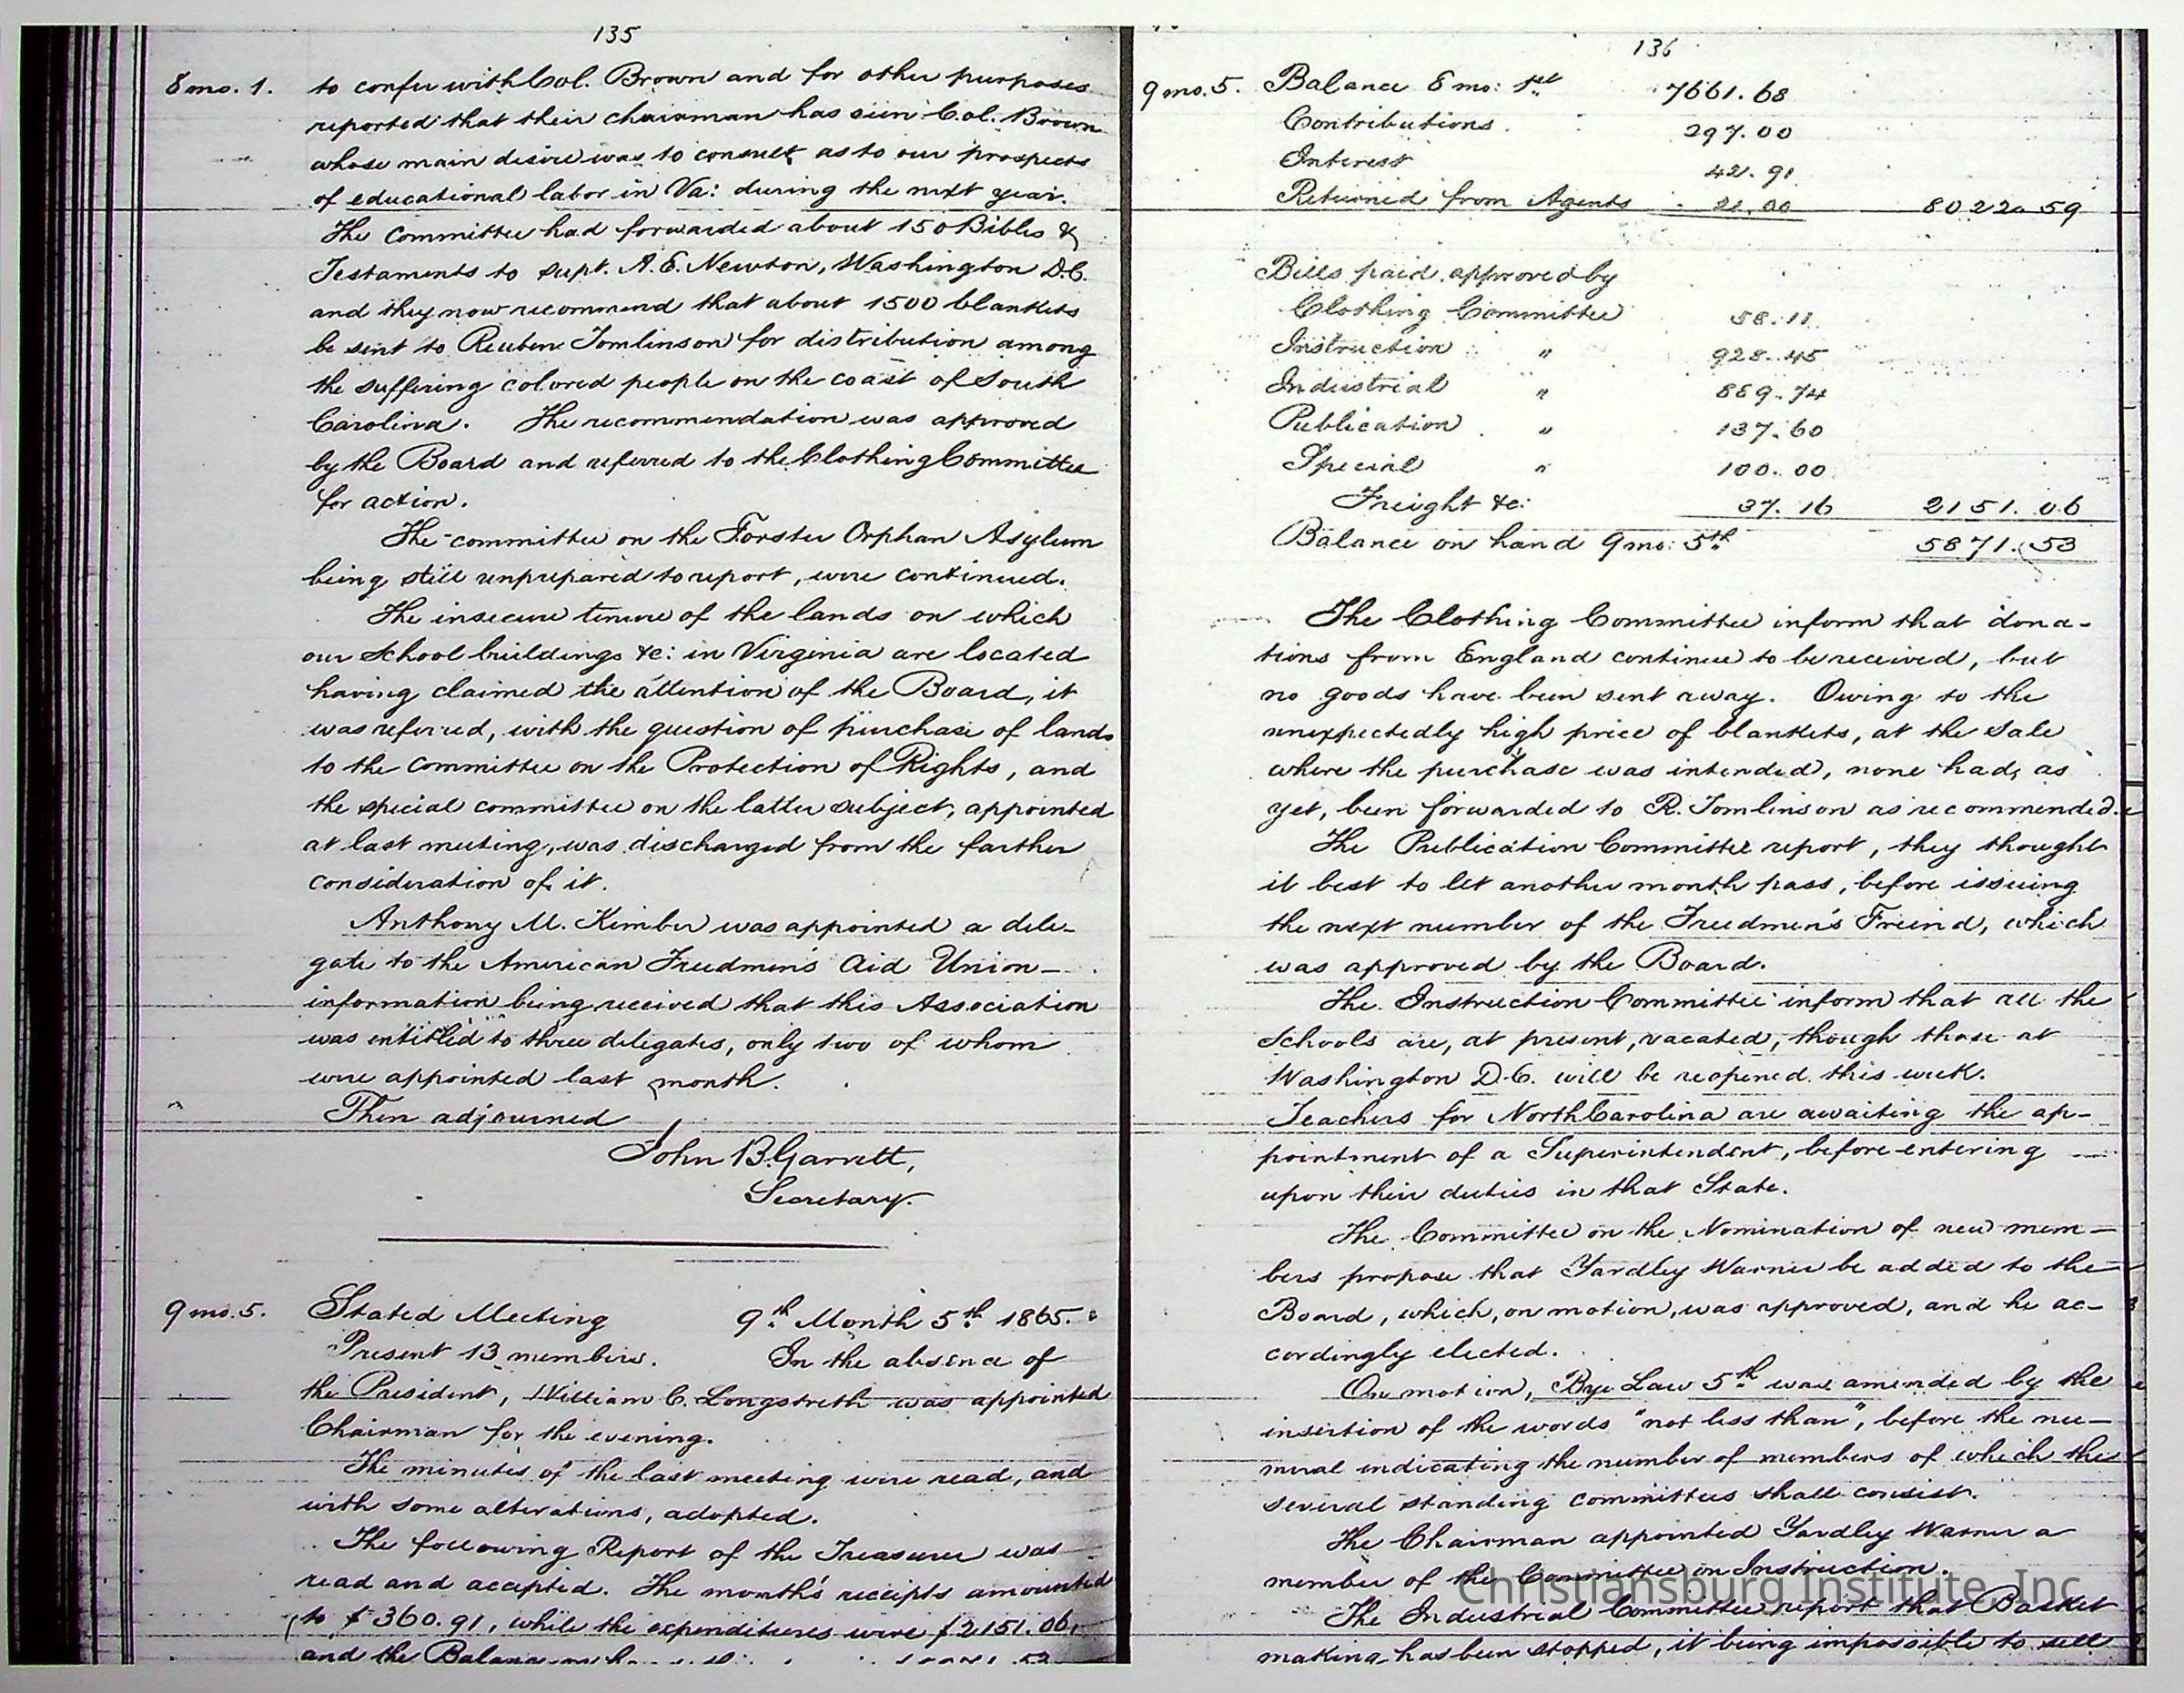 135
8 mo. 1. to confer with Col. Brown and for other purposes
reported that their chairman has seen Col. Brown
whose main desire was to consult as to our prospects
of educational labor in Va: during the next year.
The committee had forwarded about 150 Bibles &
Testaments to Supt. A. E. Newton, Washington D.C.
and they now recommend that about 1500 blankets
be sent to Reuben Tomlinson for distribution among
the suffering colored people on the coast of South
Carolina. The recommendation was approved
by the Board and referred to the Clothing Committee
for action.
The committee on the Forster Orphan Asylum
being still unprepared to report, were continued.
The insecure tenure of the lands on which
our school buildings &c: in Virginia are located
having claimed the attention of the Board, it
was referred, with the question of purchase of lands
to the committee on the Protection of Rights, and
the special committee on the latter subject, appointed
at last meeting, was discharged from the farther
consideration of it.
Anthony M. Kimber was appointed a dele-
gate to the American Freedmens Aid Union —
information being received that this Association
was entitled to three delegates, only two of whom
were appointed last month.
Then adjourned
John B. Garrett,
Secretary.
9 mo. 5. Stated Meeting 9th Month 5th 1865.
Present 13 members. In the absence of
the President, William C. Longstreth was appointed
Chairman for the evening.
The minutes of the last meeting were read, and
with some alterations, adopted.
The following Report of the Treasurer was
read and accepted. The month's receipts amounted
to $360.91, while the expenditures were $2151.06,
and the Balance
136
9 mo. 5. Balance 8 mo: 1st 7661.68
Contributions 297.00
Interest 42.91
Returned from Agents 21.00 8022.59
Bills paid approved by
Clothing Committee 58.11
Instruction " 928.45
Industrial " 889.74
Publication " 137.60
Special " 100.00
Freight &c: 37.16 2151.06
Balance on hand 9 mo: 5th 5871.53
The Clothing Committee inform that dona-
tions from England continue to be received, but
no goods have been sent away. Owing to the
unexpectedly high price of blankets, at the sale
where the purchase was intended, none had, as
yet, been forwarded to R. Tomlinson as recommended.
The Publication Committee report, they thought
it best to let another month pass, before issuing
the next number of the Freedmen's Freind, which
was approved by the Board.
The Instruction Committee inform that all the
Schools are, at present, vacated, though those at
Washington D.C. will be reopened this week.
Teachers for North Carolina are awaiting the ap-
pointment of a Superintendent, before entering
upon their duties in that State.
The Committee on the Nomination of new mem-
bers propose that Yardley Warner be added to the
Board, which, on motion, was approved, and he ac-
cordingly elected.
On motion, Bye Law 5th was amended by the
insertion of the words "not less than", before the nu-
meral indicating the number of members of which the
several standing committees shall consist.
The Chairman appointed Yardley Warner a
member of the Committee on Instruction.
Christiansburg Institute, Inc
The Industrial Committee report that Basket
making has been stopped, it being impossible to sell